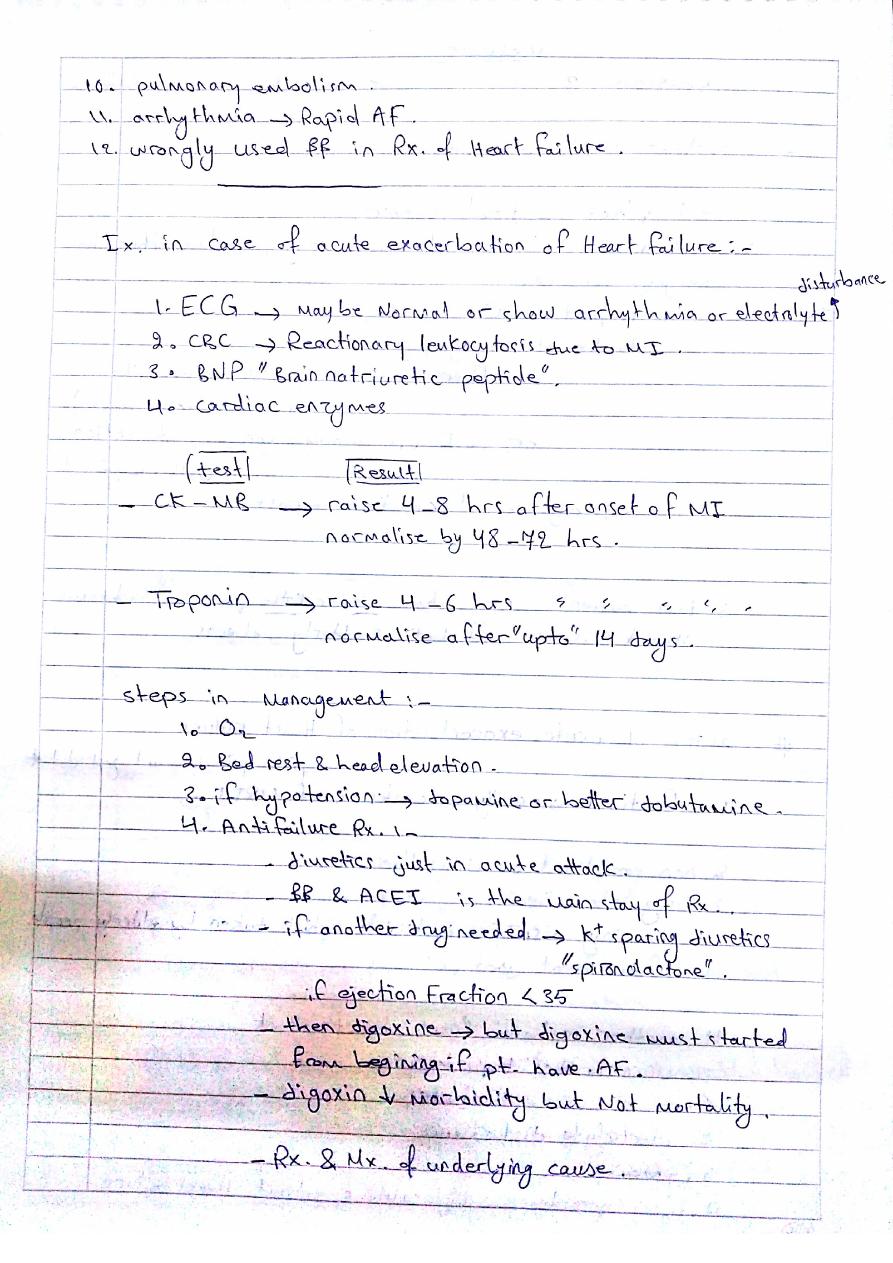 10. pulmonary embolism.
11. arrhythmia → Rapid AF.
12. wrongly used ββ in Rx. of Heart failure.
Ix. in case of acute exacerbation of Heart failure :-
disturbance
1. ECG → Maybe Normal or show arrhythmia or electrolyte ↑
2. CBC → Reactionary leukocytosis due to MI.
3. BNP "Brain natriuretic peptide".
4. cardiac enzymes
test Result
- CK-MB → raise 4-8 hrs after onset of MI
normalise by 48-72 hrs.
- Troponin → raise 4-6 hrs " " " " "
normalise after "upto" 14 days.
steps in Management :-
1. O2
2. Bed rest & head elevation.
3. if hypotension → dopamine or better dobutamine.
4. Antifailure Rx. :-
- diuretics just in acute attack.
- ββ & ACEI is the main stay of Rx.
- if another drug needed → K+ sparing diuretics
"spironolactone".
if ejection Fraction < 35
- then digoxine → but digoxine must started
from begining if pt. have AF.
- digoxin ↓ Morbidity but Not mortality.
- Rx. & Mx. of underlying cause.